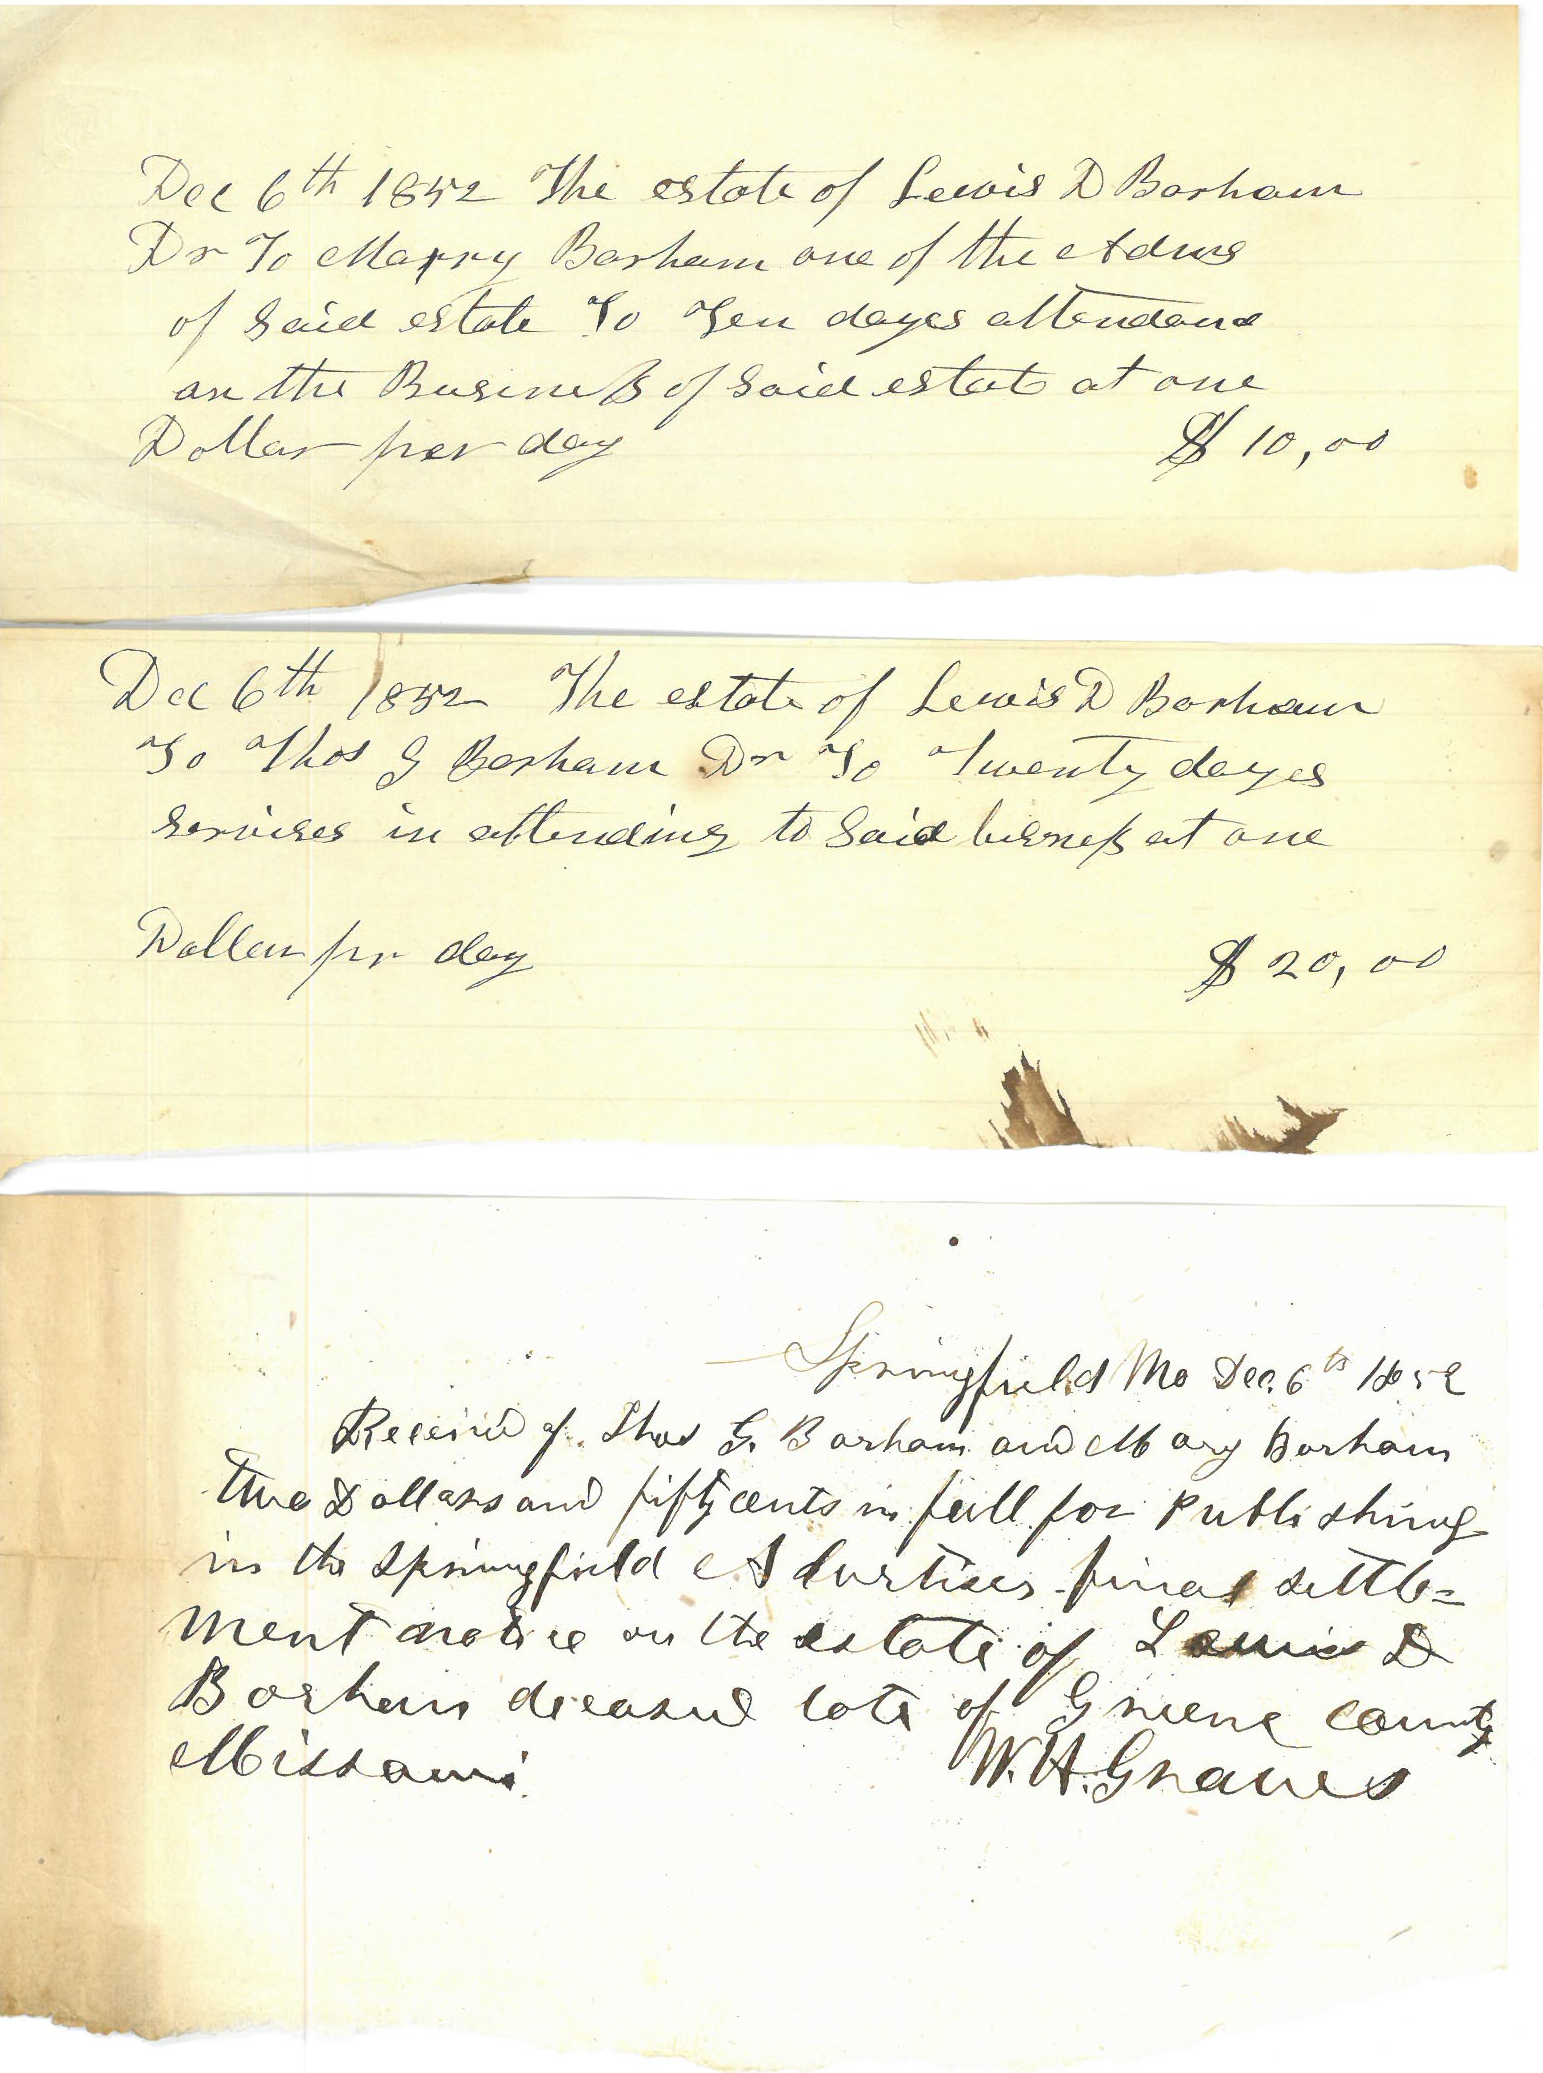 Dec 6th 1852 The estate of Lewis D Barham
Dr To Marry Barham one of the Adms
of Said estate To Ten dayes attendance
on the Business of Said estate at one
Dollar per day $ 10,00
Dec 6th 1852 The estate of Lewis D Barham
To Thos G Barham Dr To Twenty dayes
Servises in attending to Said bisness at one
Dollar pr day $ 20,00
Springfield Mo Dec. 6th 1852
Received of Thos G. Barham and Mary Barham
two Dollars and fifty cents in full for Publishing
in the Springfield Advertiser final settle=
ment notice on the estate of Lewis D
Barham deceased late of Greene county
Missouri. W. H. Graves